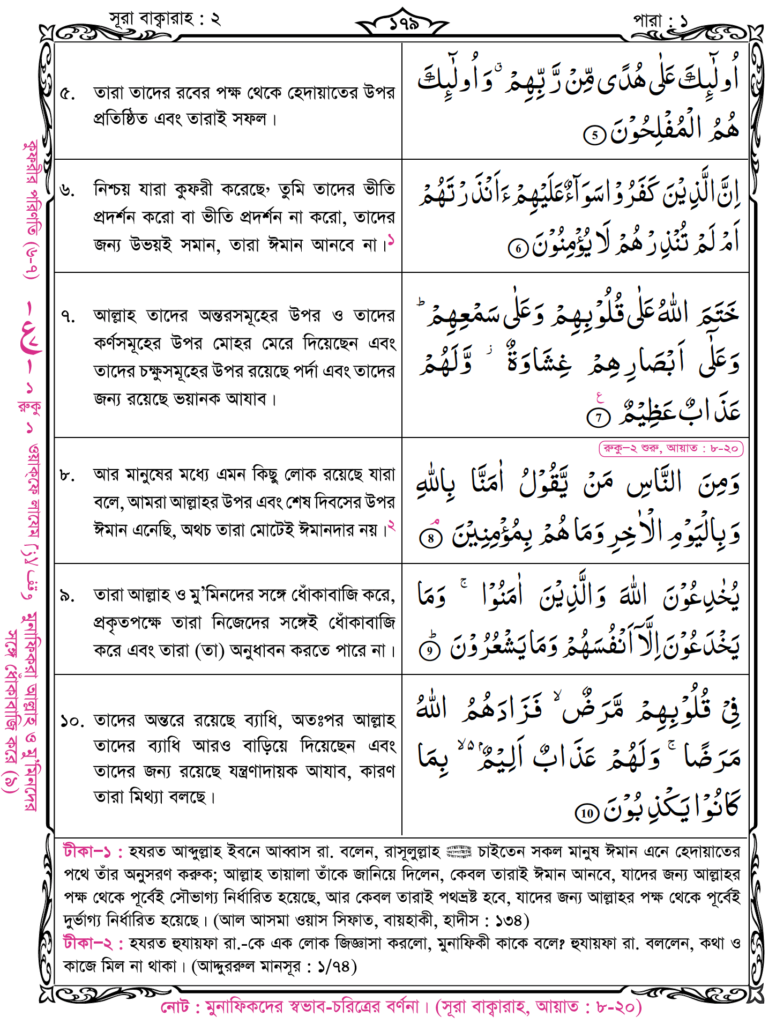 সূরা বাক্বারাহ : ২
১৭৯
পারা : ১
৫. তারা তাদের রবের পক্ষ থেকে হেদায়াতের উপর
প্রতিষ্ঠিত এবং তারাই সফল।
اُولٰٓئِكَ عَلٰى هُدًى مِّنْ رَّبِّهِمْ ۗ وَاُولٰٓئِكَ
هُمُ الْمُفْلِحُوْنَ 5
৬. নিশ্চয় যারা কুফরী করেছে, তুমি তাদের ভীতি
প্রদর্শন করো বা ভীতি প্রদর্শন না করো, তাদের
জন্য উভয়ই সমান, তারা ঈমান আনবে না।১
اِنَّ الَّذِيْنَ كَفَرُوْا سَوَآءٌ عَلَيْهِمْ ءَاَنْذَرْتَهُمْ
اَمْ لَمْ تُنْذِرْهُمْ لَا يُؤْمِنُوْنَ 6
৭. আল্লাহ তাদের অন্তরসমূহের উপর ও তাদের
কর্ণসমূহের উপর মোহর মেরে দিয়েছেন এবং
তাদের চক্ষুসমূহের উপর রয়েছে পর্দা এবং তাদের
জন্য রয়েছে ভয়ানক আযাব।
خَتَمَ اللهُ عَلٰى قُلُوْبِهِمْ وَعَلٰى سَمْعِهِمْ ؕ
وَعَلٰٓى اَبْصَارِهِمْ غِشَاوَةٌ ۫ وَّلَهُمْ
عَذَابٌ عَظِيْمٌ 7 ع
রুকু-২ শুরু, আয়াত : ৮-২০
৮. আর মানুষের মধ্যে এমন কিছু লোক রয়েছে যারা
বলে, আমরা আল্লাহর উপর এবং শেষ দিবসের উপর
ঈমান এনেছি, অথচ তারা মোটেই ঈমানদার নয়।২
وَمِنَ النَّاسِ مَنْ يَّقُوْلُ اٰمَنَّا بِاللهِ
وَبِالْيَوْمِ الْاٰخِرِ وَمَا هُمْ بِمُؤْمِنِيْنَ 8 ۘ
৯. তারা আল্লাহ ও মু'মিনদের সঙ্গে ধোঁকাবাজি করে,
প্রকৃতপক্ষে তারা নিজেদের সঙ্গেই ধোঁকাবাজি
করে এবং তারা (তা) অনুধাবন করতে পারে না।
يُخٰدِعُوْنَ اللهَ وَالَّذِيْنَ اٰمَنُوْا ۚ وَمَا
يَخْدَعُوْنَ اِلَّآ اَنْفُسَهُمْ وَمَا يَشْعُرُوْنَ 9
১০. তাদের অন্তরে রয়েছে ব্যাধি, অতঃপর আল্লাহ
তাদের ব্যাধি আরও বাড়িয়ে দিয়েছেন এবং
তাদের জন্য রয়েছে যন্ত্রণাদায়ক আযাব, কারণ
তারা মিথ্যা বলছে।
فِيْ قُلُوْبِهِمْ مَّرَضٌ ۙ فَزَادَهُمُ اللهُ
مَرَضًا ۚ وَلَهُمْ عَذَابٌ اَلِيْمٌۢ ۙ۬ بِمَا
كَانُوْا يَكْذِبُوْنَ 10
টীকা-১ : হযরত আব্দুল্লাহ ইবনে আব্বাস রা. বলেন, রাসূলুল্লাহ ﷺ চাইতেন সকল মানুষ ঈমান এনে হেদায়াতের
পথে তাঁর অনুসরণ করুক; আল্লাহ তায়ালা তাঁকে জানিয়ে দিলেন, কেবল তারাই ঈমান আনবে, যাদের জন্য আল্লাহর
পক্ষ থেকে পূর্বেই সৌভাগ্য নির্ধারিত হয়েছে, আর কেবল তারাই পথভ্রষ্ট হবে, যাদের জন্য আল্লাহর পক্ষ থেকে পূর্বেই
দুর্ভাগ্য নির্ধারিত হয়েছে। (আল আসমা ওয়াস সিফাত, বায়হাকী, হাদীস : ১৩৪)
টীকা-২ : হযরত হুযায়ফা রা.-কে এক লোক জিজ্ঞাসা করলো, মুনাফিকী কাকে বলে? হুযায়ফা রা. বললেন, কথা ও
কাজে মিল না থাকা। (আদ্দুররুল মানসূর : ১/৭৪)
নোট : মুনাফিকদের স্বভাব-চরিত্রের বর্ণনা। (সূরা বাক্বারাহ, আয়াত : ৮-২০)
কুফরীর পরিণতি (৬-৭)
রুকু ১
ওয়াক্‌ফে লাযেম
মুনাফিকরা আল্লাহ ও মু'মিনদের
সঙ্গে ধোঁকাবাজি করে (৯)